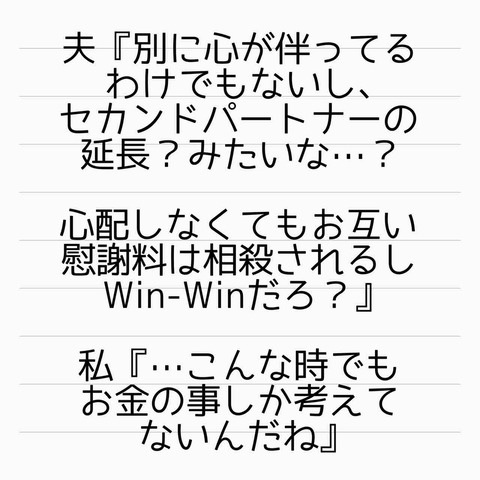 夫『別に心が伴ってる
わけでもないし、
セカンドパートナーの
延長？みたいな…？
心配しなくてもお互い
慰謝料は相殺されるし
Win-Winだろ？』
私『…こんな時でも
お金の事しか考えて
ないんだね』